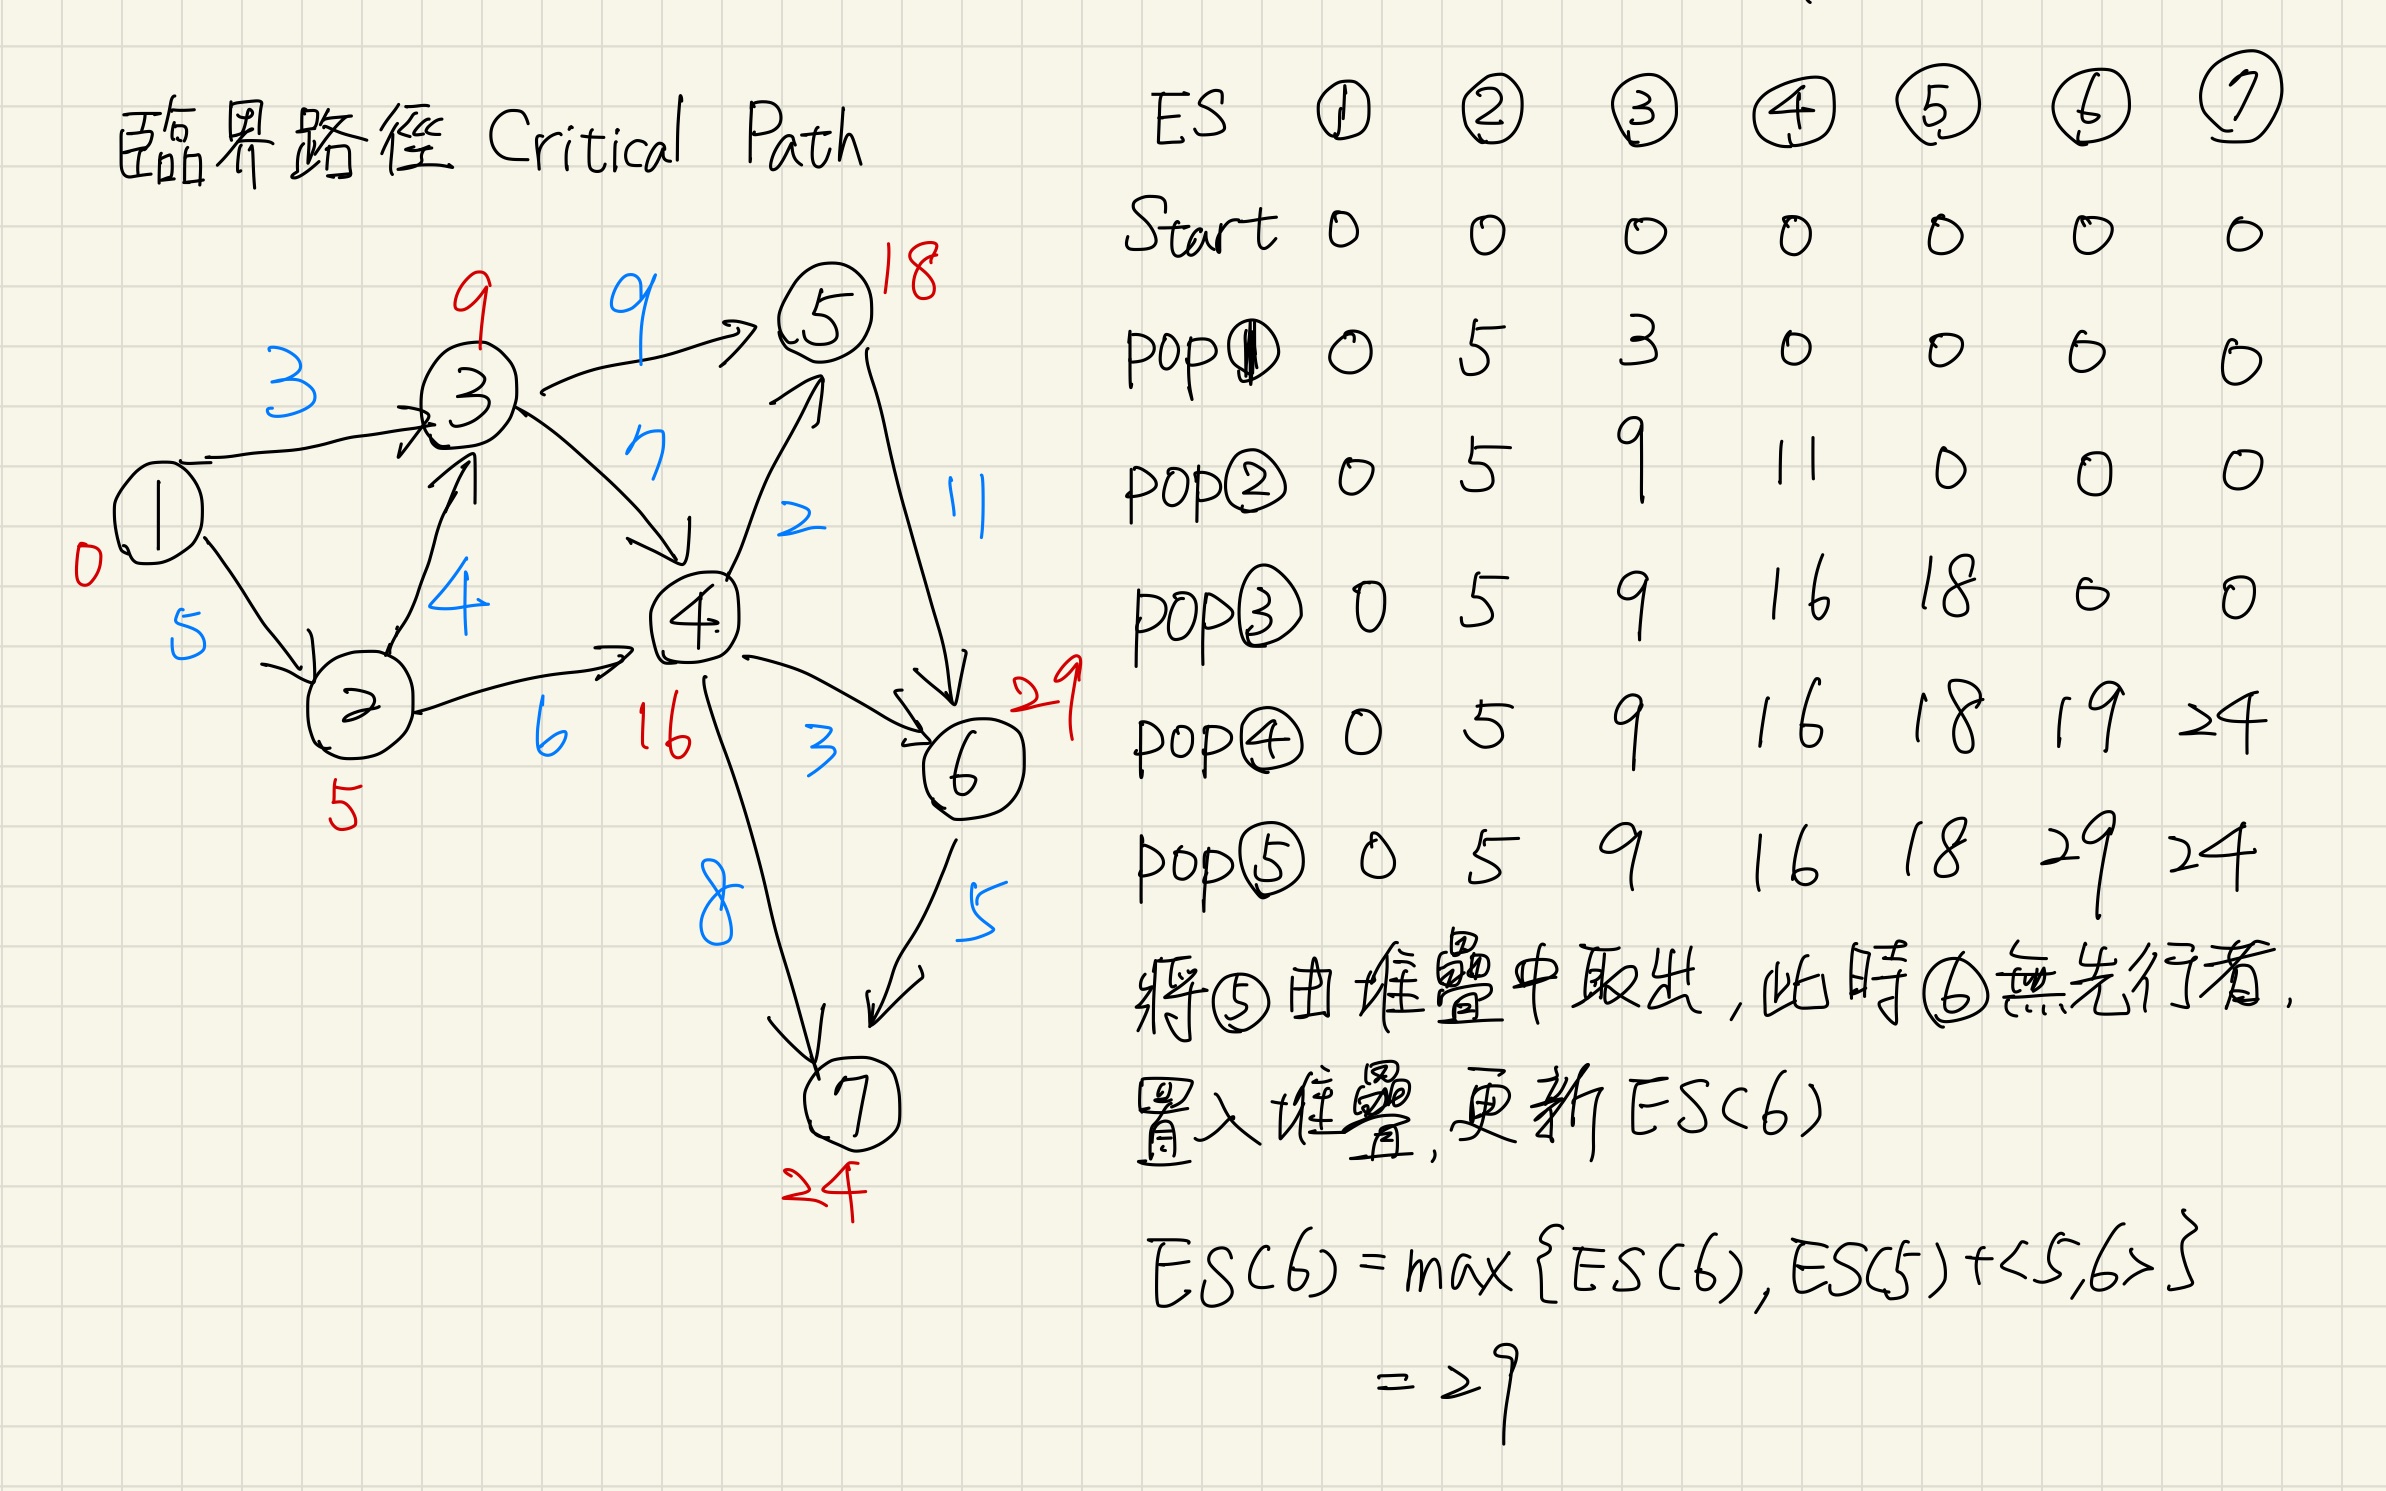 臨界路徑 Critical Path
18
9
9
5
3
3
7
11
1
2
0
4
4
5
29
2
6
16
3
6
5
8
5
7
24
ES ① ② ③ ④ ⑤ ⑥ ⑦
Start 0 0 0 0 0 0 0
pop① 0 5 3 0 0 0 0
pop② 0 5 9 11 0 0 0
pop③ 0 5 9 16 18 0 0
pop④ 0 5 9 16 18 19 24
pop⑤ 0 5 9 16 18 29 24
將⑤由堆疊中取出,此時⑥無先行者,
置入堆疊,更新ES(6)
ES(6)=max{ES(6),ES(5)+<5,6>}
=29